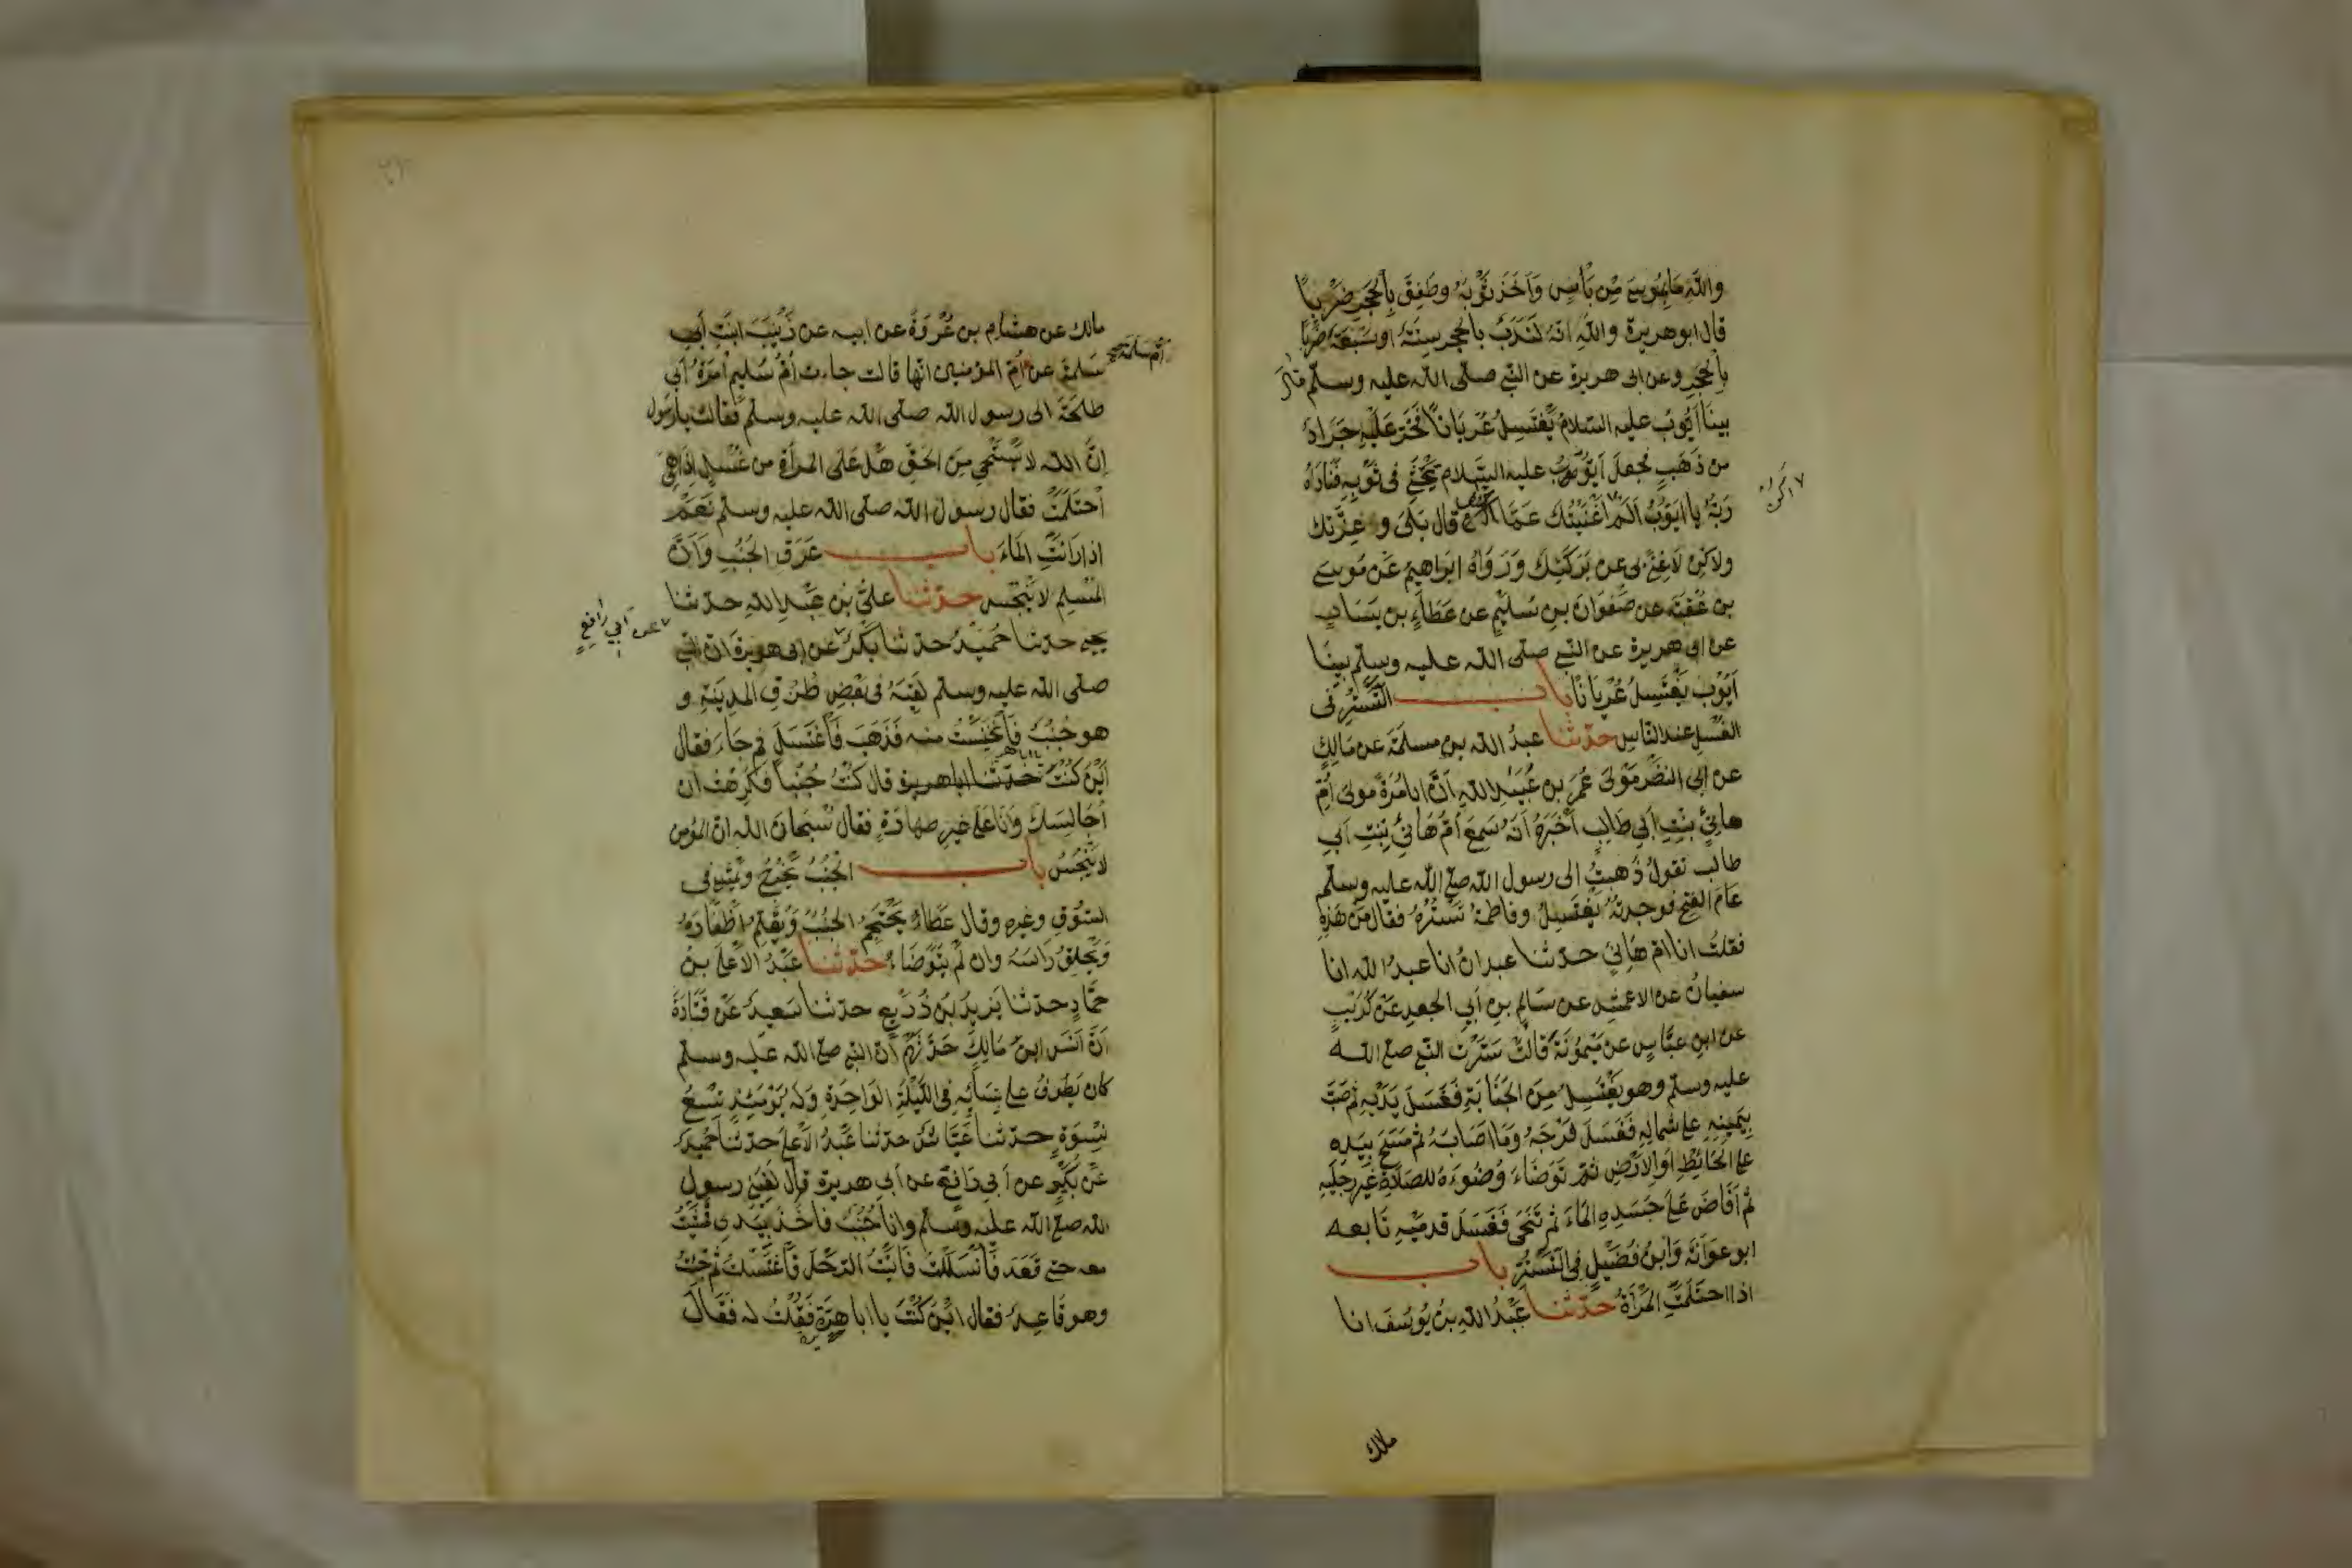 والله ما بموسى من بأس وأخذ ثوبه وطفق بالحجر ضربا
قال ابو هريرة والله انه لندب بالحجر ستة او سبعة ضربا
بالحجر وعن ابى هريرة عن النبي صلى الله عليه وسلم قال
بينا ايوب عليه السلام يغتسل عريانا فخر عليه جراد
من ذهب فجعل ايوب عليه السلام يحتثي فى ثوبه فناداه
ربه يا ايوب ألم اغنيتك عما قال بلى وعزتك
ولاكن لا غنى بى عن بركتك ورواه ابراهيم عن موسى
بن عقبة عن صفوان بن سليم عن عطاء بن يسار
عن ابى هريرة عن النبي صلى الله عليه وسلم بينا
أيوب يغتسل عريانا باب التستر فى
الغسل عند الناس حدثنا عبد الله بن مسلمة عن مالك
عن ابى النضر مولى عمر بن عبيد الله أن ابا مرة مولى أم
هانئ بنت ابي طالب أخبره أنه سمع أم هانئ بنت ابي
طالب تقول ذهبت الى رسول الله صلى الله عليه وسلم
عام الفتح فوجدته يغتسل وفاطمة تستره فقال من هذه
فقلت انا ام هانئ حدثنا عبدان انا عبد الله انا
سفيان عن الاعمش عن سالم بن ابي الجعد عن كريب
عن ابن عباس عن ميمونة قالت سترت النبي صلى الله
عليه وسلم وهو يغتسل من الجنابة فغسل يديه ثم صب
بيمينه على شماله فغسل فرجه وما اصابه ثم مسح بيده
على الحائط او الارض ثم توضاء وضوءه للصلاة غير رجليه
ثم أفاض على جسده الماء ثم تنحى فغسل قدميه تابعه
ابو عوانة وابن فضيل فى التستر باب
اذا احتلمت المرأة حدثنا عبد الله بن يوسف انا
مالك
مالك عن هشام بن عروة عن ابيه عن زينب ابنت أبي
سلمة عن أم المؤمنين انها قالت جاءت أم سليم امرة أبي
أم سلمة صح
طلحة الى رسول الله صلى الله عليه وسلم فقالت يا رسول
إن الله لا يستحي من الحق هل على المرأة من غسل اذا هي
أحتلمت فقال رسول الله صلى الله عليه وسلم نعم
اذا رأت الماء باب عرق الجنب وأن
المسلم لا ينجس حدثنا علي بن عبد الله حدثنا
يحيى حدثنا حميد حدثنا بكر عن ابى هريرة ان النبي
عن أبي رافع
صلى الله عليه وسلم لقيه فى بعض طرق المدينة و
هو جنب فانخنست منه فذهب فاغتسل ثم جاء فقال
أين كنت يا ابا هريرة قال كنت جنبا فكرهت ان
أجالسك وأنا على غير طهارة فقال سبحان الله ان المؤمن
لا ينجس باب الجنب يخرج ويمشي فى
السوق وغيره وقال عطاء يحتجم الجنب ويقلم أظفاره
ويحلق رأسه وان لم يتوضاء حدثنا عبد الاعلى بن
حماد حدثنا يزيد بن زريع حدثنا سعيد عن قتادة
أن أنس ابن مالك حدثهم أن النبي صلى الله عليه وسلم
كان يطوف على نسائه فى الليلة الواحدة وله يومئذ تسع
نسوة حدثنا عياش حدثنا عبد الأعلى حدثنا حميد
عن بكر عن أبي رافع عن أبي هريرة قال لقيني رسول
الله صلى الله عليه وسلم وانا جنب فأخذ بيدي فمشيت
معه حتى قعد فانسللت فاتيت الرحل فاغتسلت ثم جئت
وهو قاعد فقال اين كنت يا ابا هريرة فقلت له فقال